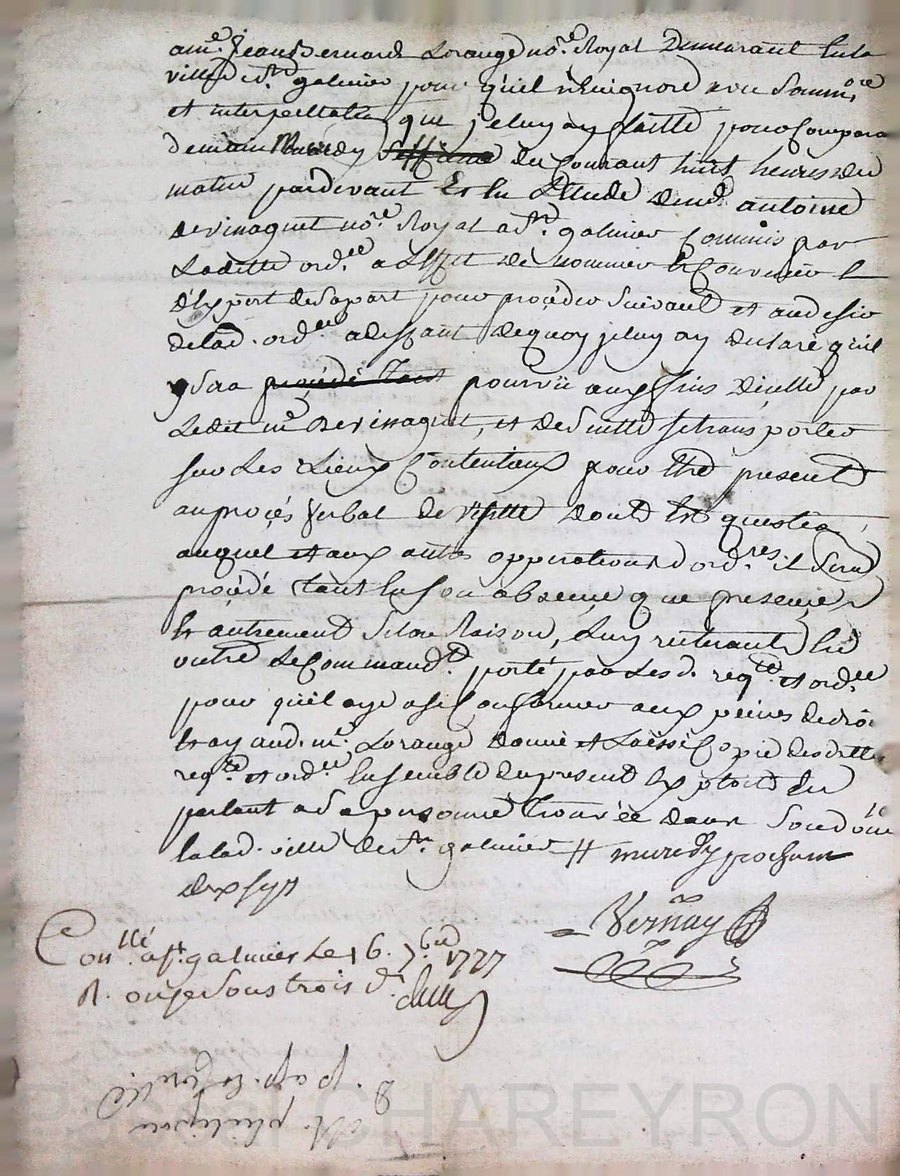 a me. Jean Bernard Lorange no.re Royal Demeurant En la
ville de st galmier pour qu'il n'En ignore avec Somm.on
et interpellation que je luy ay faitte pour Compara
demain Mercredy du Courant huit heures du
matin pardevant Et En l'Etude de me. antoine
Devinaguet no.re Royal a st. galmier Commis par
Laditte ord.ce a L'Effet de nommer et Convenir
d'Expert de sa part pour procéder Suivant et au desir
de lad. ord.ce a deffaut de quoy je luy ay declaré qu'il
y Sera procédé tant pourvu aux fins d'icelle par
Ledit me. Devinaguet, et de suitte se transporter
sur Les Lieux Contentieux pour Etre present
au procés Verbal de visitte dont Est question,
auquel et aux autres opperations ord.res il sera
procédé tant En son absence que presence
Et autrement Selon Raison, Luy reiterant En
outre Le Command.t porté par Les d. req.te et ord.ce
pour qu'il aye a se Conformer aux peines de droi
Et ay aud. me. Lorange donné et Laissé Copie desdittes
req.te et ord.ce Ensemble du present Exploit En
parlant a sa personne trouvée dans Son dom.le
En lad. ville de st. galmier # mercredy prochain
dix sept
Vernay
Con.llé a st. galmier Le 16. 7.bre 1777
R. onze sous trois d.